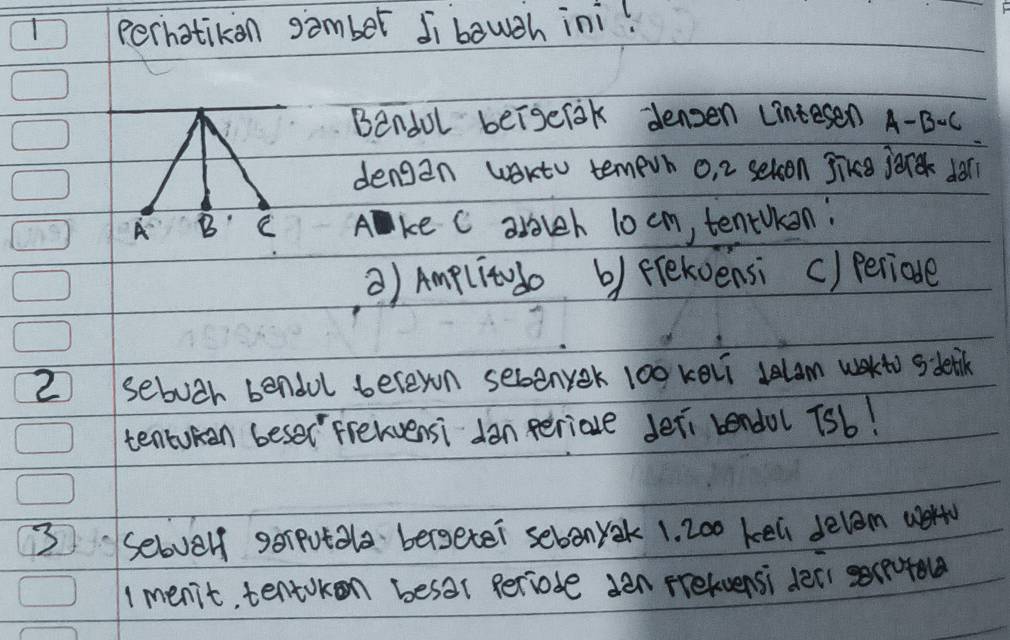 1 Perhatikan gambar di bawah ini!
Bandul bergerak dengan Lintasan A-B-C
dengan waktu tempuh 0,2 sekon Jika jarak dari
A ke C adalah 10 cm, tentukan:
A B C
a) Amplitudo b) Frekuensi c) Periode
2 Sebuah bandul berayun sebanyak 100 kali dalam waktu 5 detik
tentukan besar Frekuensi dan Periode dari bandul Tsb!
3 Sebuah garputala bergetar sebanyak 1.200 kali dalam waktu
1 menit. tentukan besar Periode dan Frekuensi dari garputala